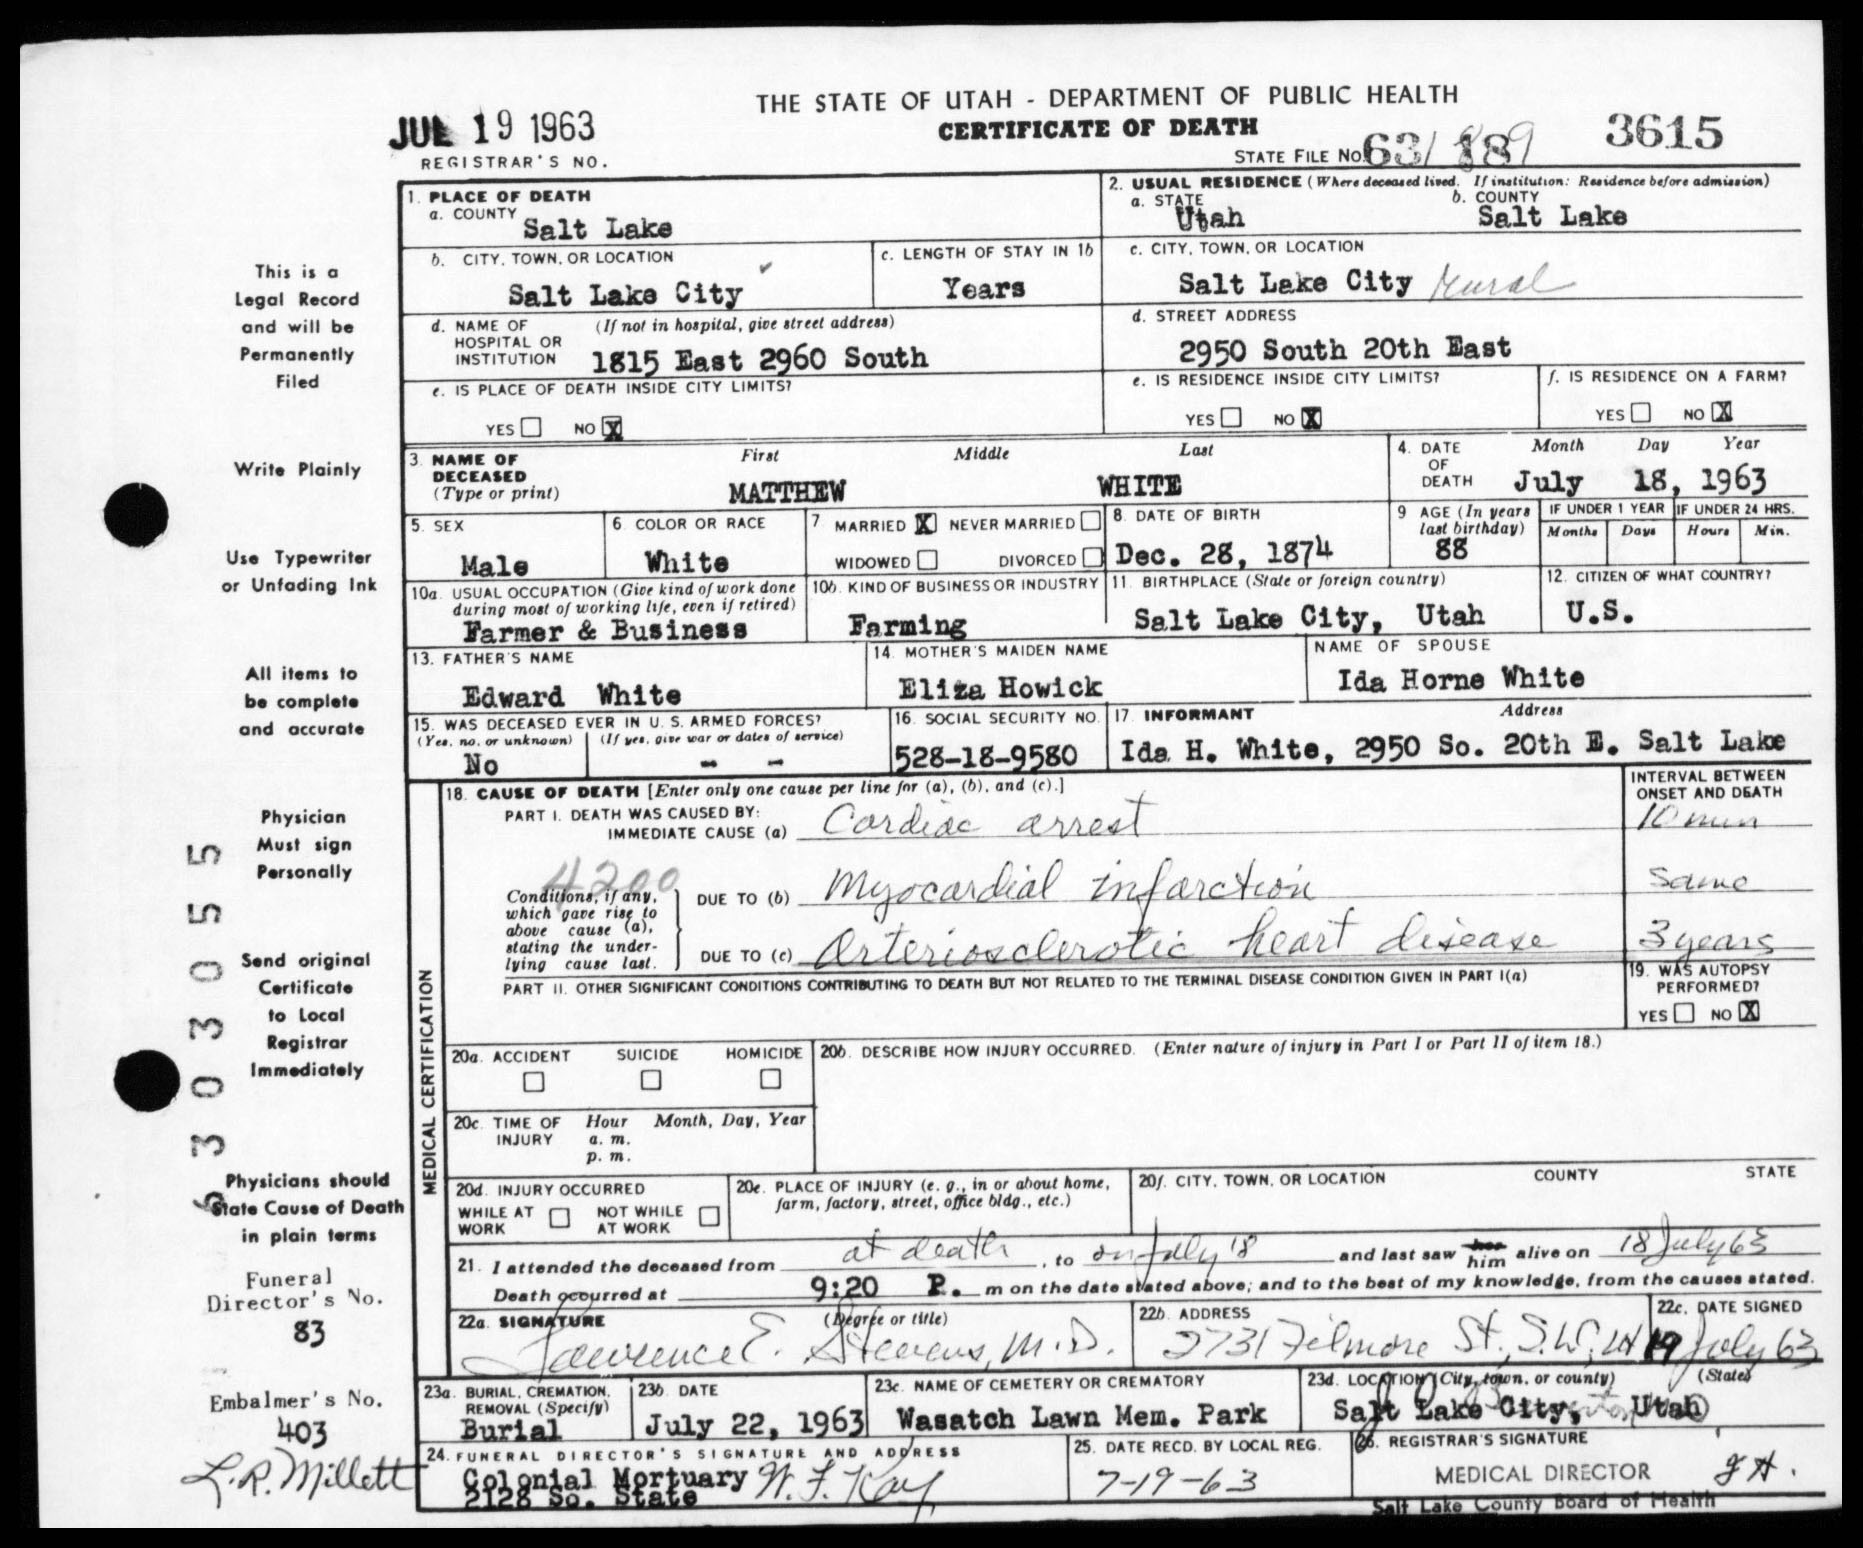 THE STATE OF UTAH - DEPARTMENT OF PUBLIC HEALTH
CERTIFICATE OF DEATH
JUL 19 1963
REGISTRAR'S NO.
STATE FILE NO. 63 / 189
3615
1. PLACE OF DEATH
a. COUNTY
Salt Lake
2. USUAL RESIDENCE (Where deceased lived. If institution: Residence before admission)
a. STATE
Utah
b. COUNTY
Salt Lake
b. CITY, TOWN, OR LOCATION
Salt Lake City
c. LENGTH OF STAY IN 1b
Years
c. CITY, TOWN, OR LOCATION
Salt Lake City Rural
d. NAME OF HOSPITAL OR INSTITUTION (If not in hospital, give street address)
1815 East 2960 South
d. STREET ADDRESS
2950 South 20th East
e. IS PLACE OF DEATH INSIDE CITY LIMITS?
YES NO X
e. IS RESIDENCE INSIDE CITY LIMITS?
YES NO X
f. IS RESIDENCE ON A FARM?
YES NO X
3. NAME OF DECEASED (Type or print)
First Middle Last
MATTHEW WHITE
4. DATE OF DEATH
Month Day Year
July 18, 1963
5. SEX
Male
6. COLOR OR RACE
White
7 MARRIED X NEVER MARRIED
WIDOWED DIVORCED
8. DATE OF BIRTH
Dec. 28, 1874
9 AGE (In years last birthday)
88
IF UNDER 1 YEAR
Months Days
IF UNDER 24 HRS.
Hours Min.
10a. USUAL OCCUPATION (Give kind of work done during most of working life, even if retired)
Farmer & Business
10b. KIND OF BUSINESS OR INDUSTRY
Farming
11. BIRTHPLACE (State or foreign country)
Salt Lake City, Utah
12. CITIZEN OF WHAT COUNTRY?
U.S.
13. FATHER'S NAME
Edward White
14. MOTHER'S MAIDEN NAME
Eliza Howick
NAME OF SPOUSE
Ida Horne White
15. WAS DECEASED EVER IN U. S. ARMED FORCES?
(Yes, no, or unknown) (If yes, give war or dates of service)
No - -
16. SOCIAL SECURITY NO.
528-18-9580
17. INFORMANT Address
Ida H. White, 2950 So. 20th E. Salt Lake
MEDICAL CERTIFICATION
18. CAUSE OF DEATH [Enter only one cause per line for (a), (b), and (c).]
INTERVAL BETWEEN ONSET AND DEATH
PART I. DEATH WAS CAUSED BY:
IMMEDIATE CAUSE (a) Cardiac arrest 10 min
4200
Conditions, if any, which gave rise to above cause (a), stating the underlying cause last.
DUE TO (b) Myocardial infarction same
DUE TO (c) Arteriosclerotic heart disease 3 years
PART II. OTHER SIGNIFICANT CONDITIONS CONTRIBUTING TO DEATH BUT NOT RELATED TO THE TERMINAL DISEASE CONDITION GIVEN IN PART I(a)
19. WAS AUTOPSY PERFORMED?
YES NO X
20a. ACCIDENT SUICIDE HOMICIDE
20b. DESCRIBE HOW INJURY OCCURRED. (Enter nature of injury in Part I or Part II of item 18.)
20c. TIME OF INJURY Hour Month, Day, Year
a. m.
p. m.
20d. INJURY OCCURRED
WHILE AT WORK NOT WHILE AT WORK
20e. PLACE OF INJURY (e. g., in or about home, farm, factory, street, office bldg., etc.)
20f. CITY, TOWN, OR LOCATION COUNTY STATE
21. I attended the deceased from at death, to on July 18 and last saw her him alive on 18 July 63
Death occurred at 9:20 P. m on the date stated above; and to the best of my knowledge, from the causes stated.
22a. SIGNATURE (Degree or title)
Lawrence E. Stevens, M.D.
22b. ADDRESS
2731 Filmore St., S.L.
22c. DATE SIGNED
19 July 63
23a. BURIAL, CREMATION, REMOVAL (Specify)
Burial
23b. DATE
July 22, 1963
23c. NAME OF CEMETERY OR CREMATORY
Wasatch Lawn Mem. Park
23d. LOCATION (City, town, or county) (State)
Salt Lake City, Utah
24. FUNERAL DIRECTOR'S SIGNATURE AND ADDRESS
Colonial Mortuary W. F. Kay
2128 So. State
25. DATE RECD. BY LOCAL REG.
7-19-63
26. REGISTRAR'S SIGNATURE
MEDICAL DIRECTOR
Salt Lake County Board of Health
This is a
Legal Record
and will be
Permanently
Filed
Write Plainly
Use Typewriter
or Unfading Ink
All items to
be complete
and accurate
Physician
Must sign
Personally
Send original
Certificate
to Local
Registrar
Immediately
Physicians should
State Cause of Death
in plain terms
6 3 0 3 0 5 5
Funeral
Director's No.
83
Embalmer's No.
403
L.R. Millett